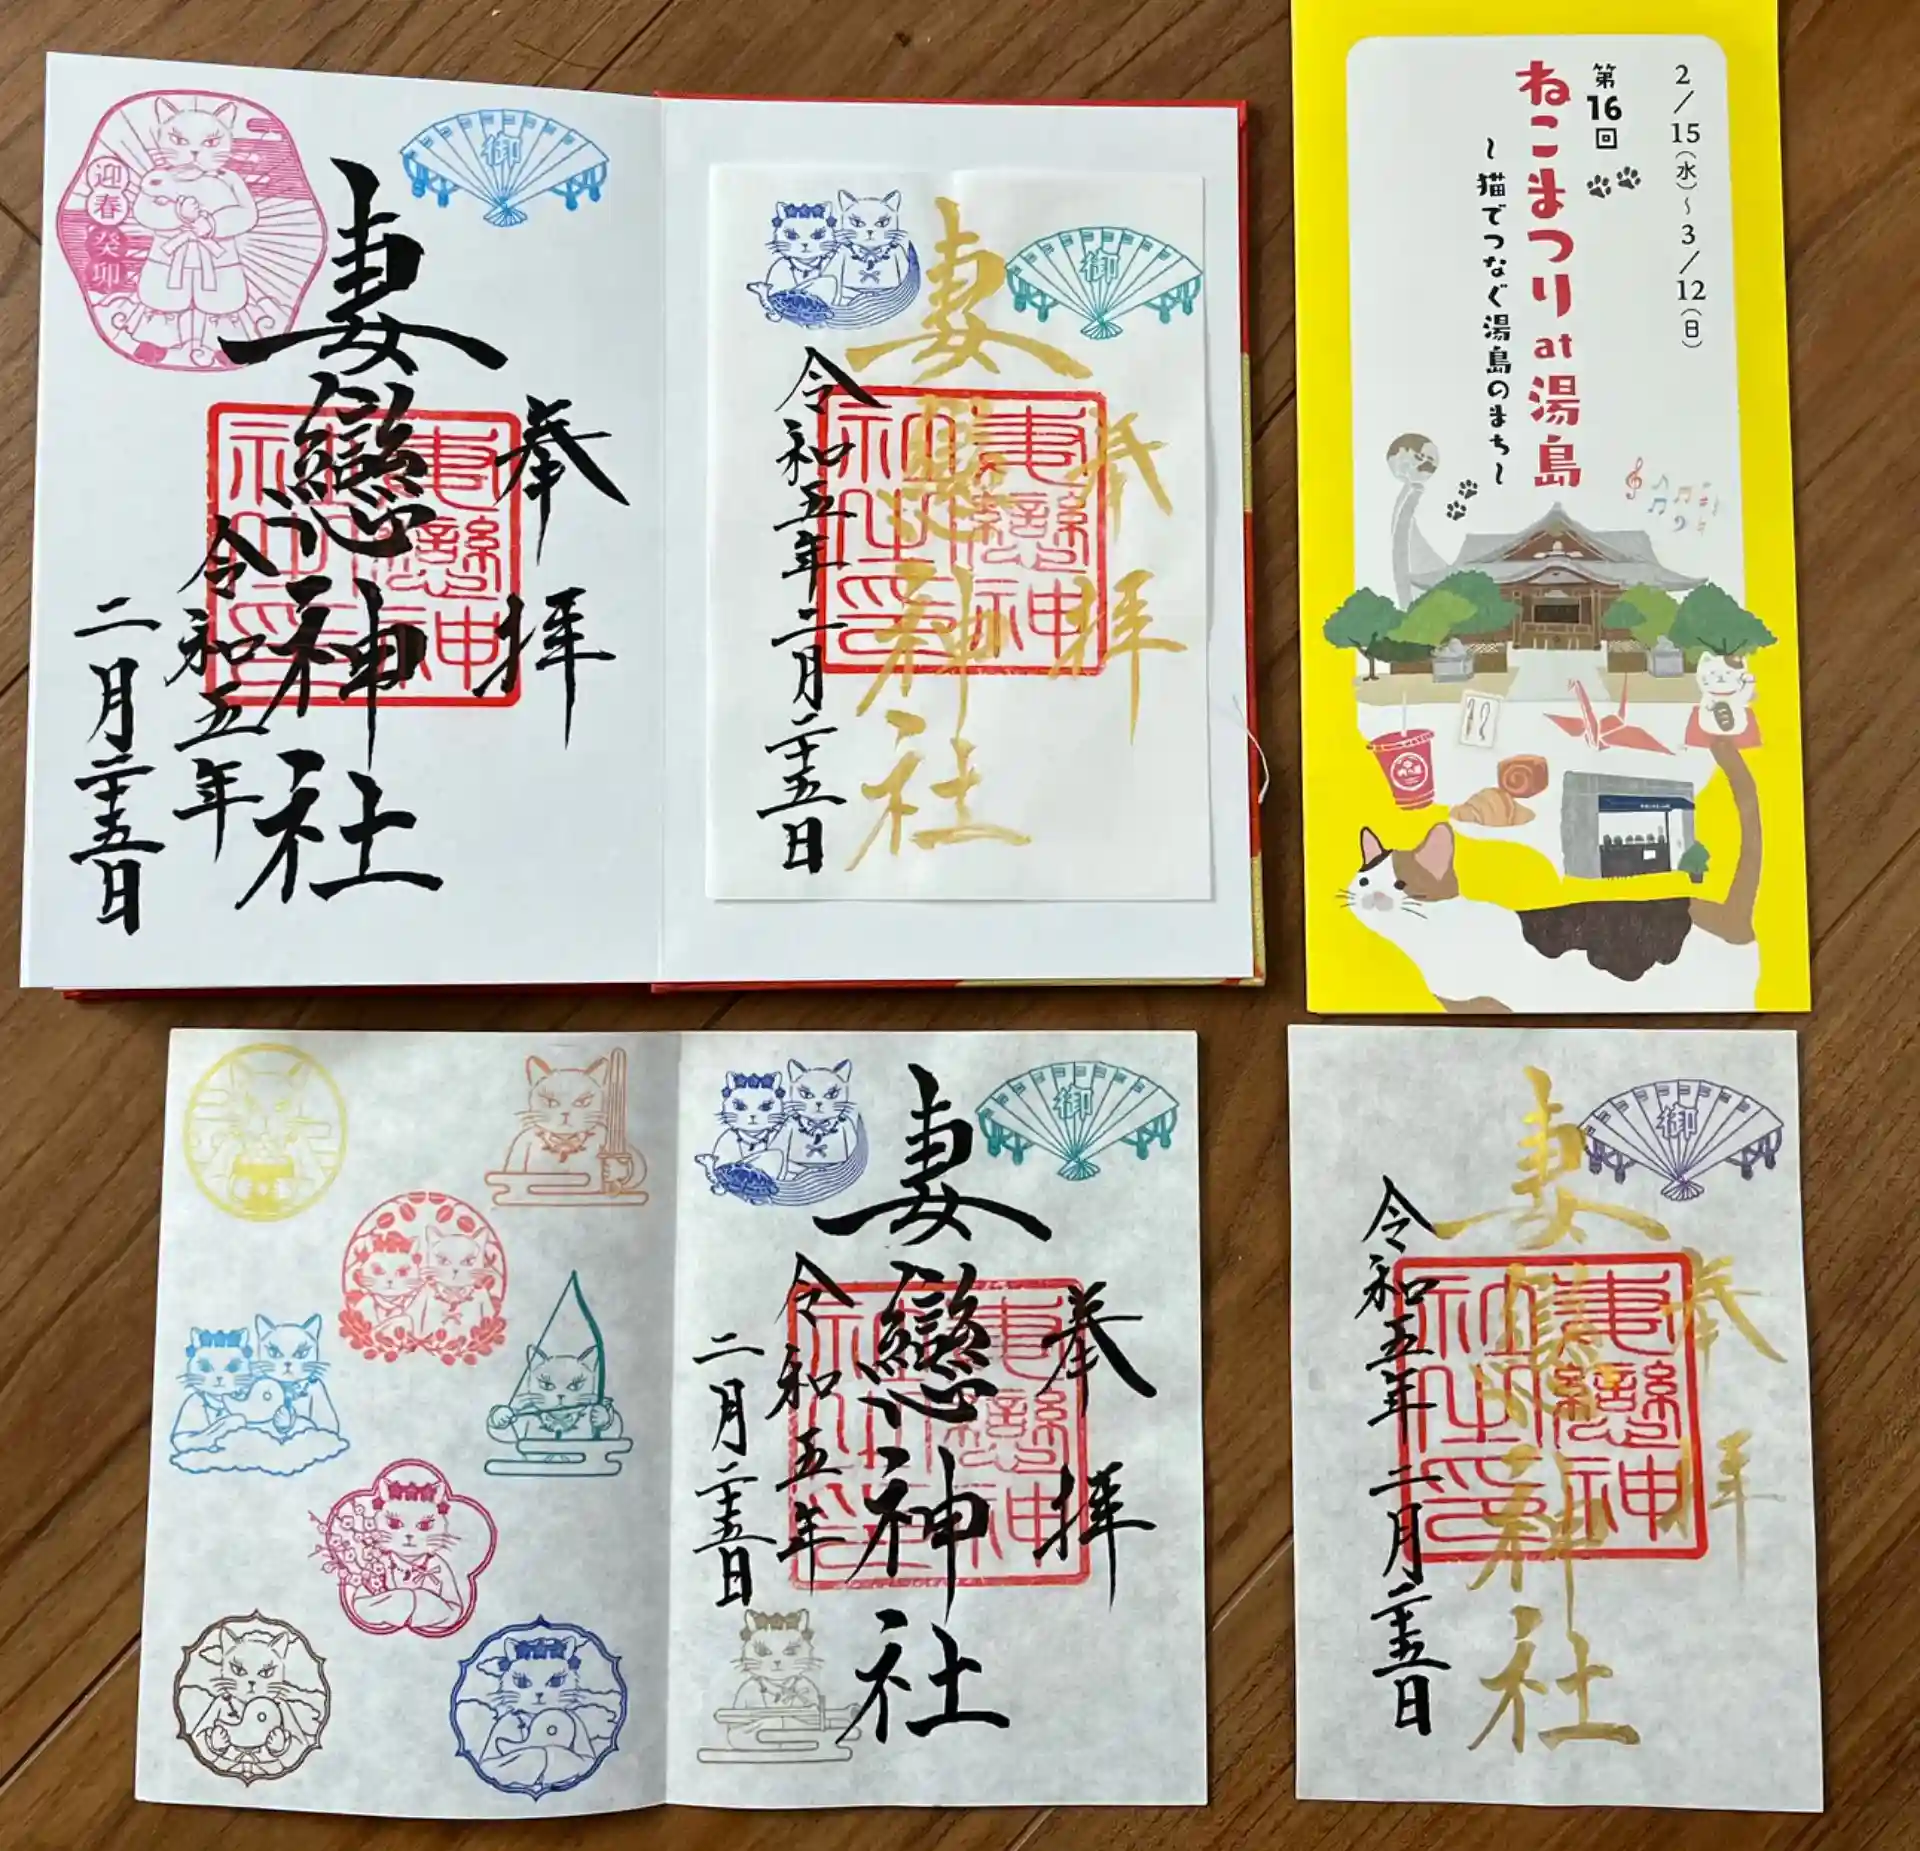 迎春
癸卯
御
奉拝
妻戀神社
令和五年
二月二十五日
妻戀神社印
御
奉拝
妻戀神社
令和五年二月二十五日
妻戀神社印
2/15(水)～3/12(日)
第16回
ねこまつり at 湯島
～猫でつなぐ湯島のまち～
御
奉拝
妻戀神社
令和五年
二月二十五日
妻戀神社印
御
奉拝
妻戀神社
令和五年二月二十五日
妻戀神社印